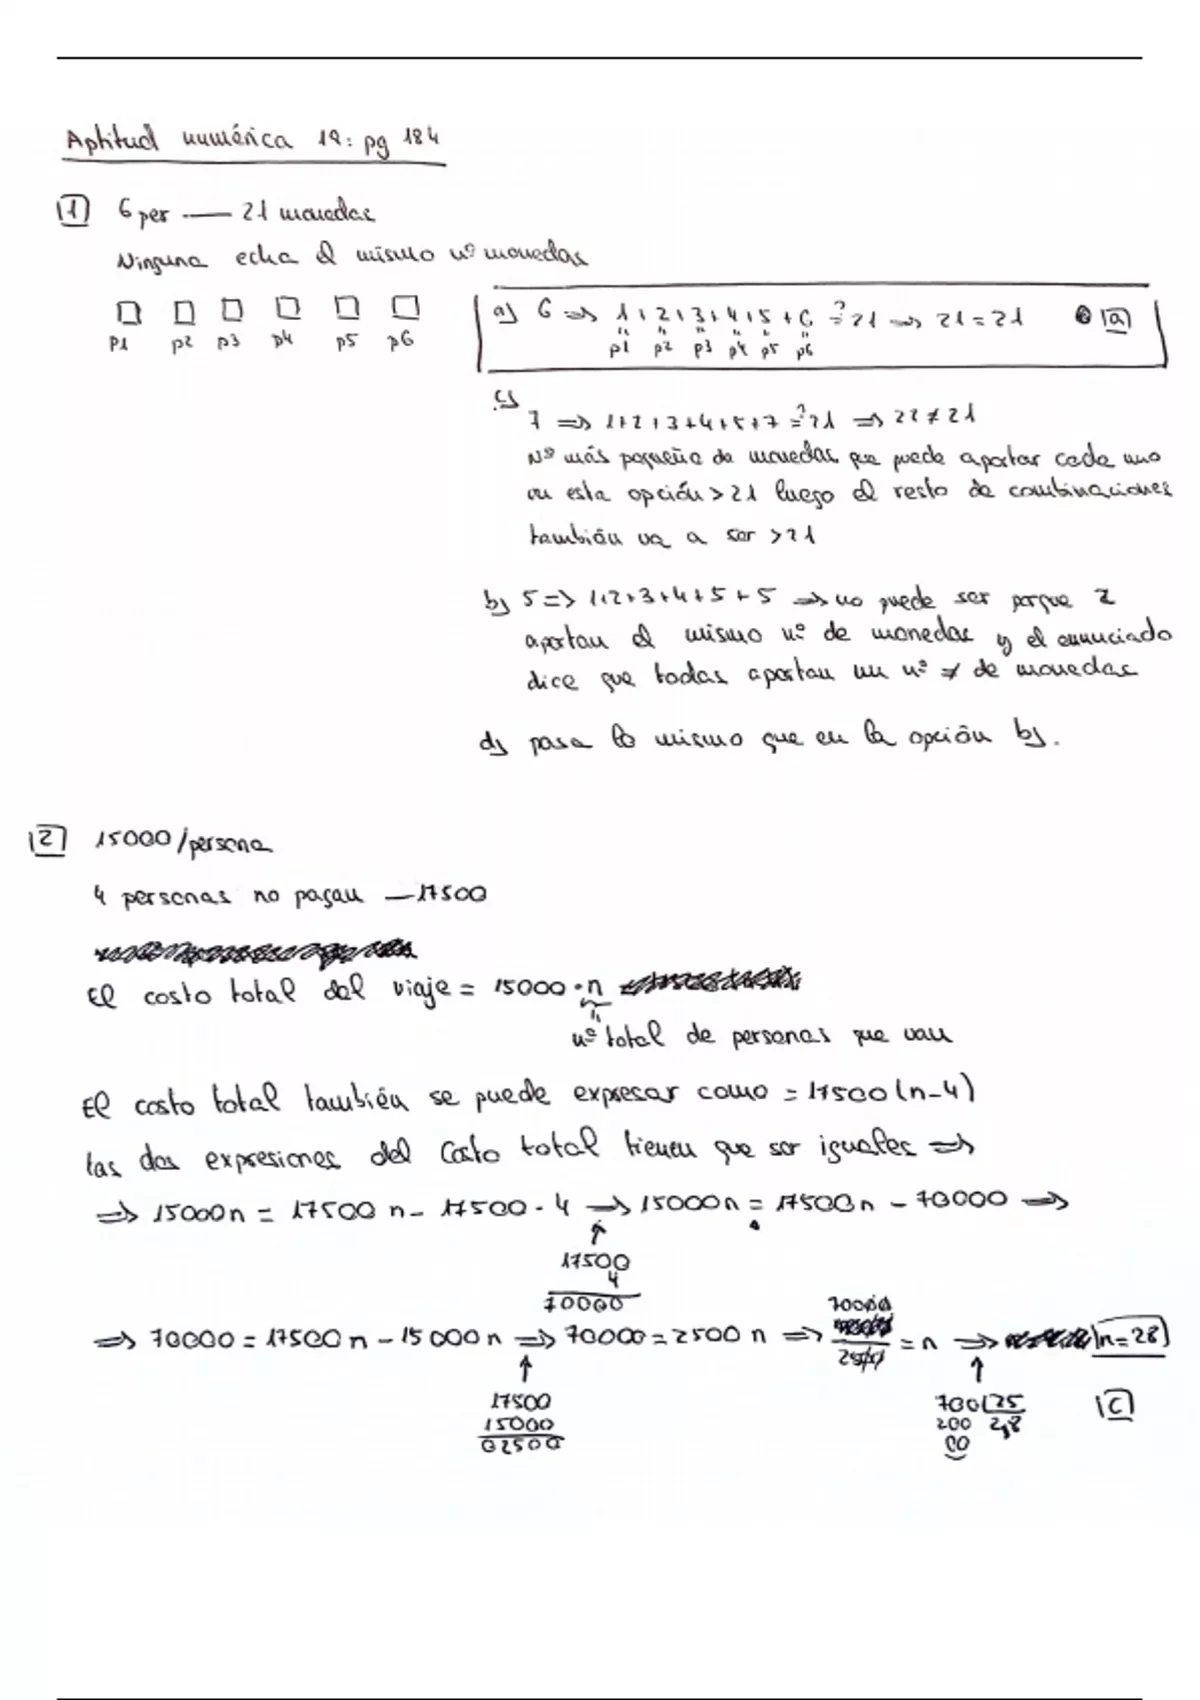 Aptitud numérica 1ª: pg 184
1 6 per — 21 monedas
Ninguna echa el mismo nº monedas
P1 p2 p3 p4 p5 p6
a) 6 => 1+2+3+4+5+6 =? 21 => 21 = 21 a
" " " " " "
p1 p2 p3 p4 p5 p6
c)
7 => 1+2+3+4+5+7 =? 21 => 22 ≠ 21
Nº más pequeño de monedas que puede aportar cada uno
en esta opción > 21 luego el resto de combinaciones
también va a ser > 21
b) 5 => 1+2+3+4+5+5 => no puede ser porque 2
aportan el mismo nº de monedas y el enunciado
dice que todas aportan un nº ≠ de monedas
d) pasa lo mismo que en la opción b).
2 15000/persona
4 personas no pagan — 17500
El costo total del viaje = 15000 · n
"
nº total de personas que van
El costo total también se puede expresar como = 17500(n-4)
las dos expresiones del Costo total tienen que ser iguales =>
=> 15000n = 17500n - 17500 · 4 => 15000n = 17500n - 70000 =>
↑
17500
4
70000
=> 70000 = 17500n - 15000n => 70000 = 2500n => 70000/2500 = n => n = 28
↑ ↑
17500 700 25 c
15000 200 2,8
02500 00